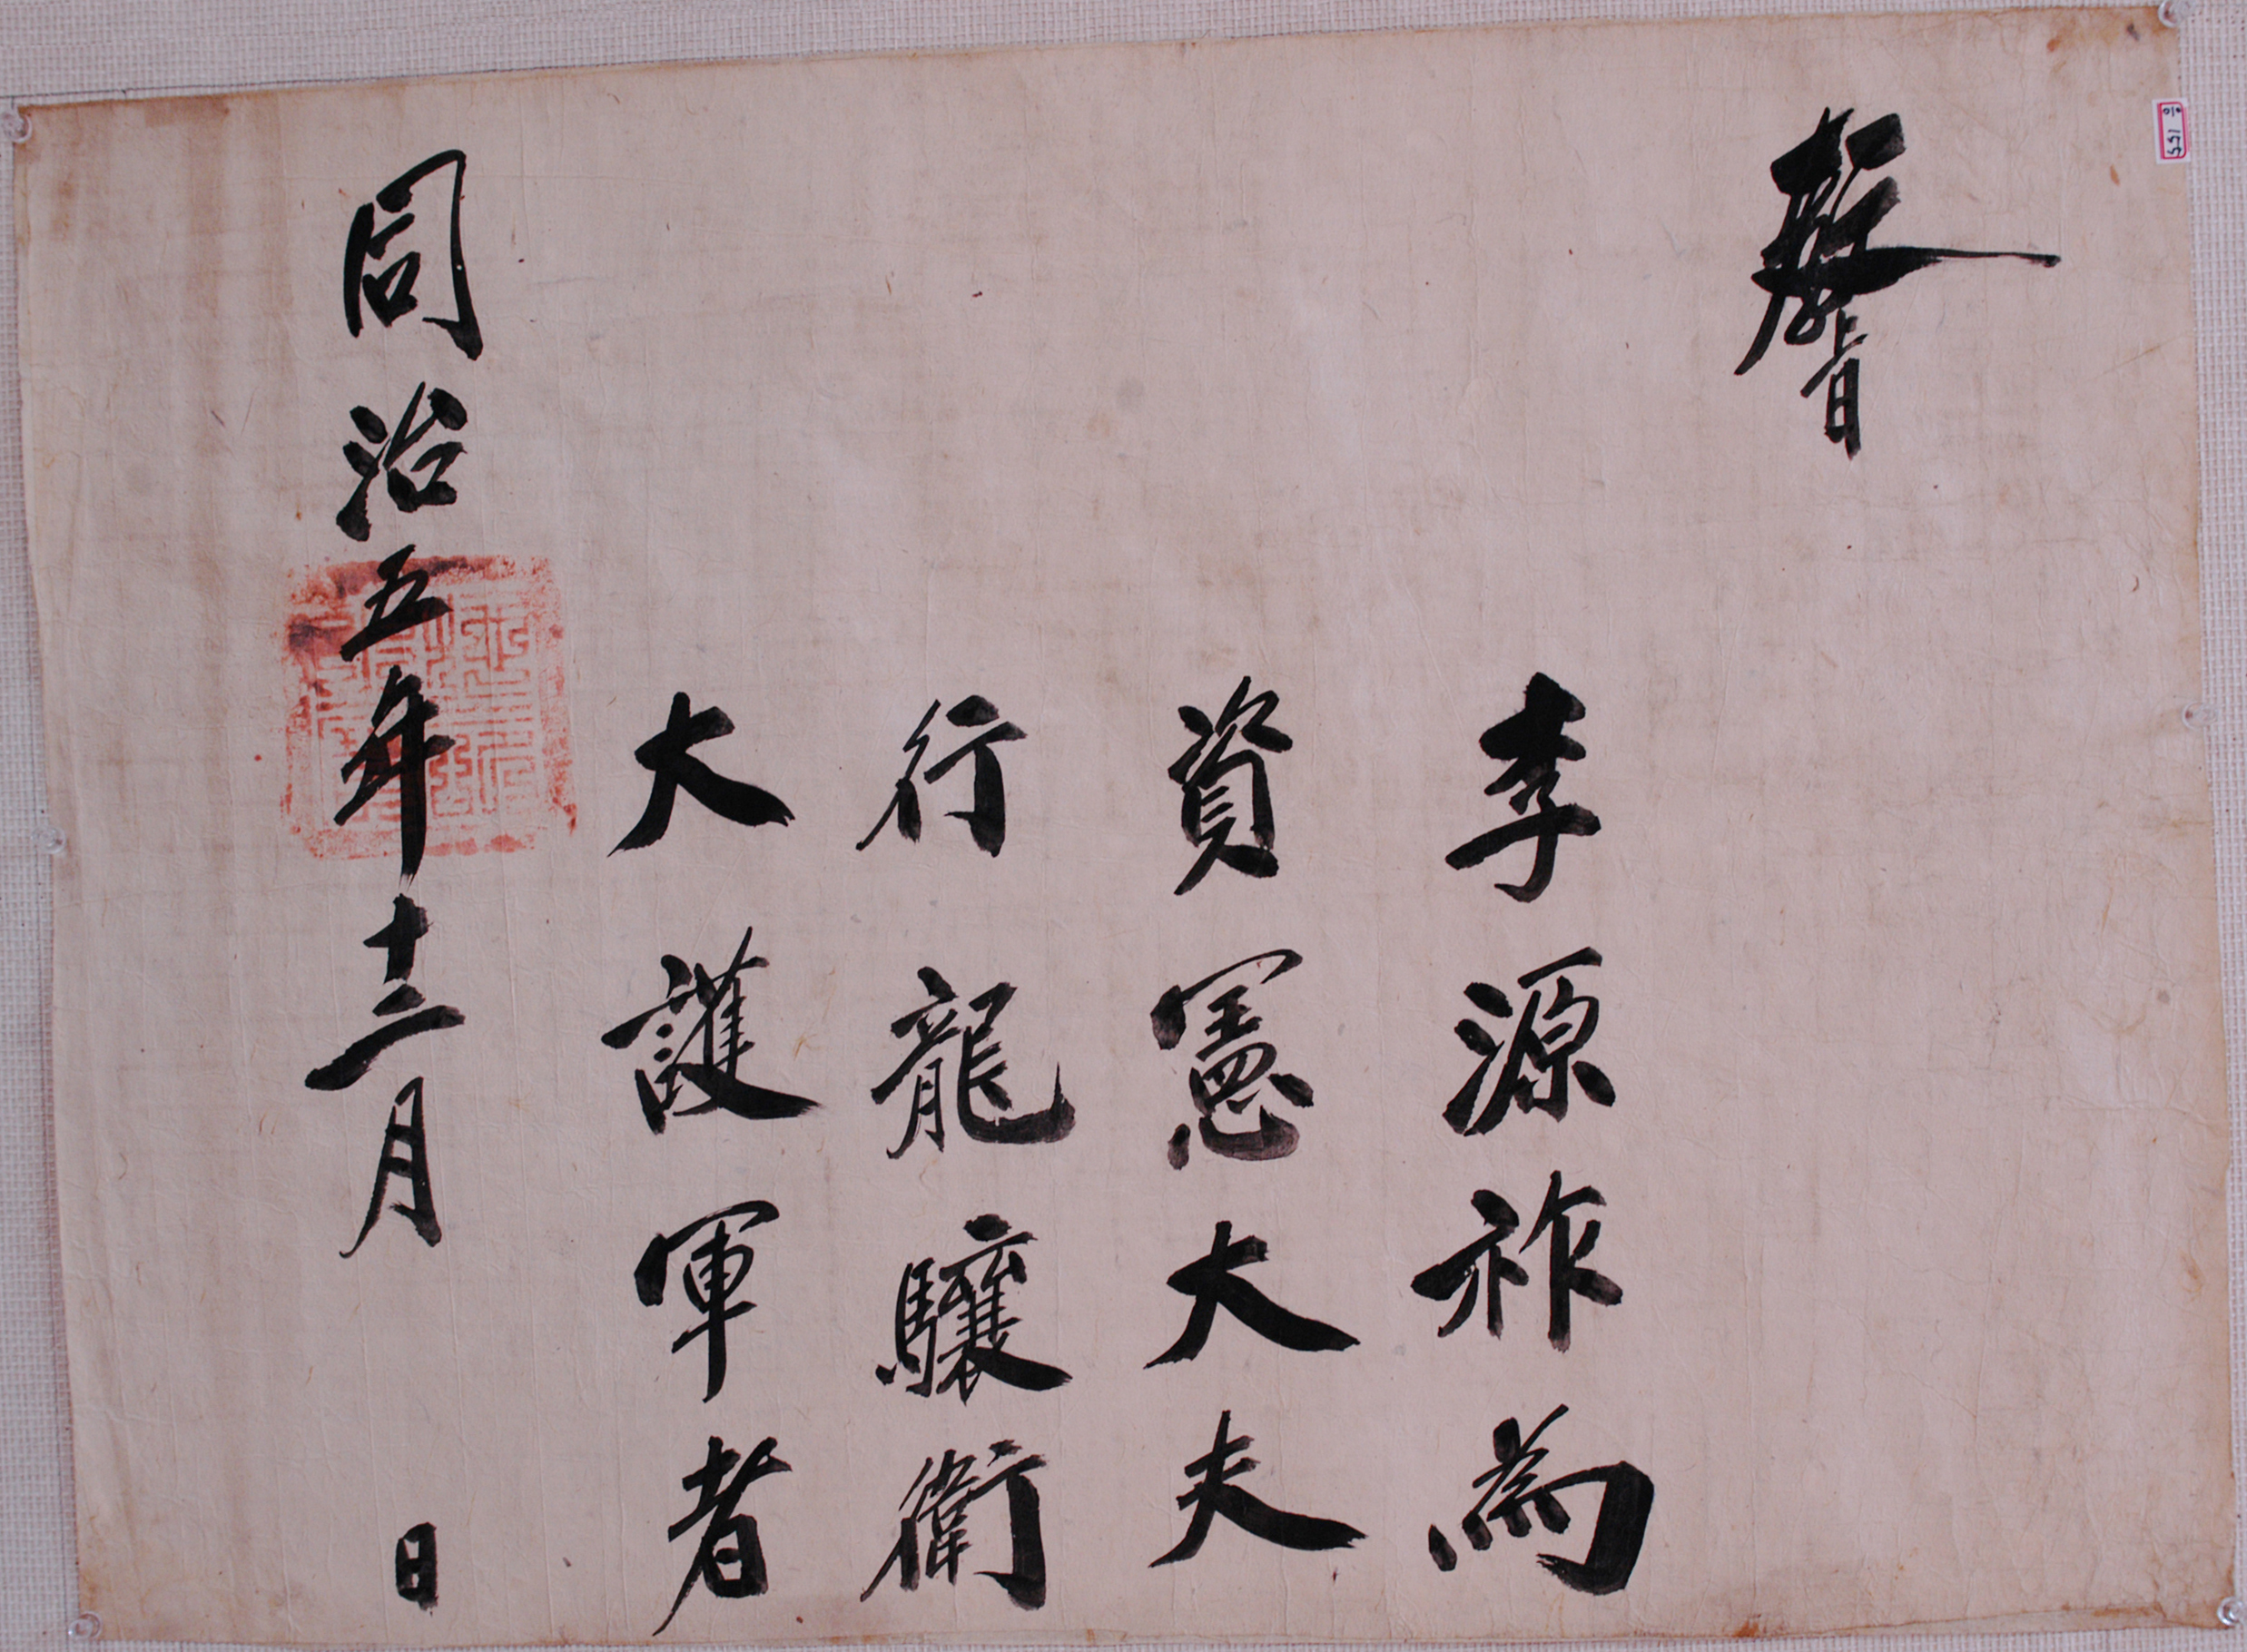 敎旨
李源祚為
資憲大夫
行龍驤衛
大護軍者
同治五年十二月 日
551